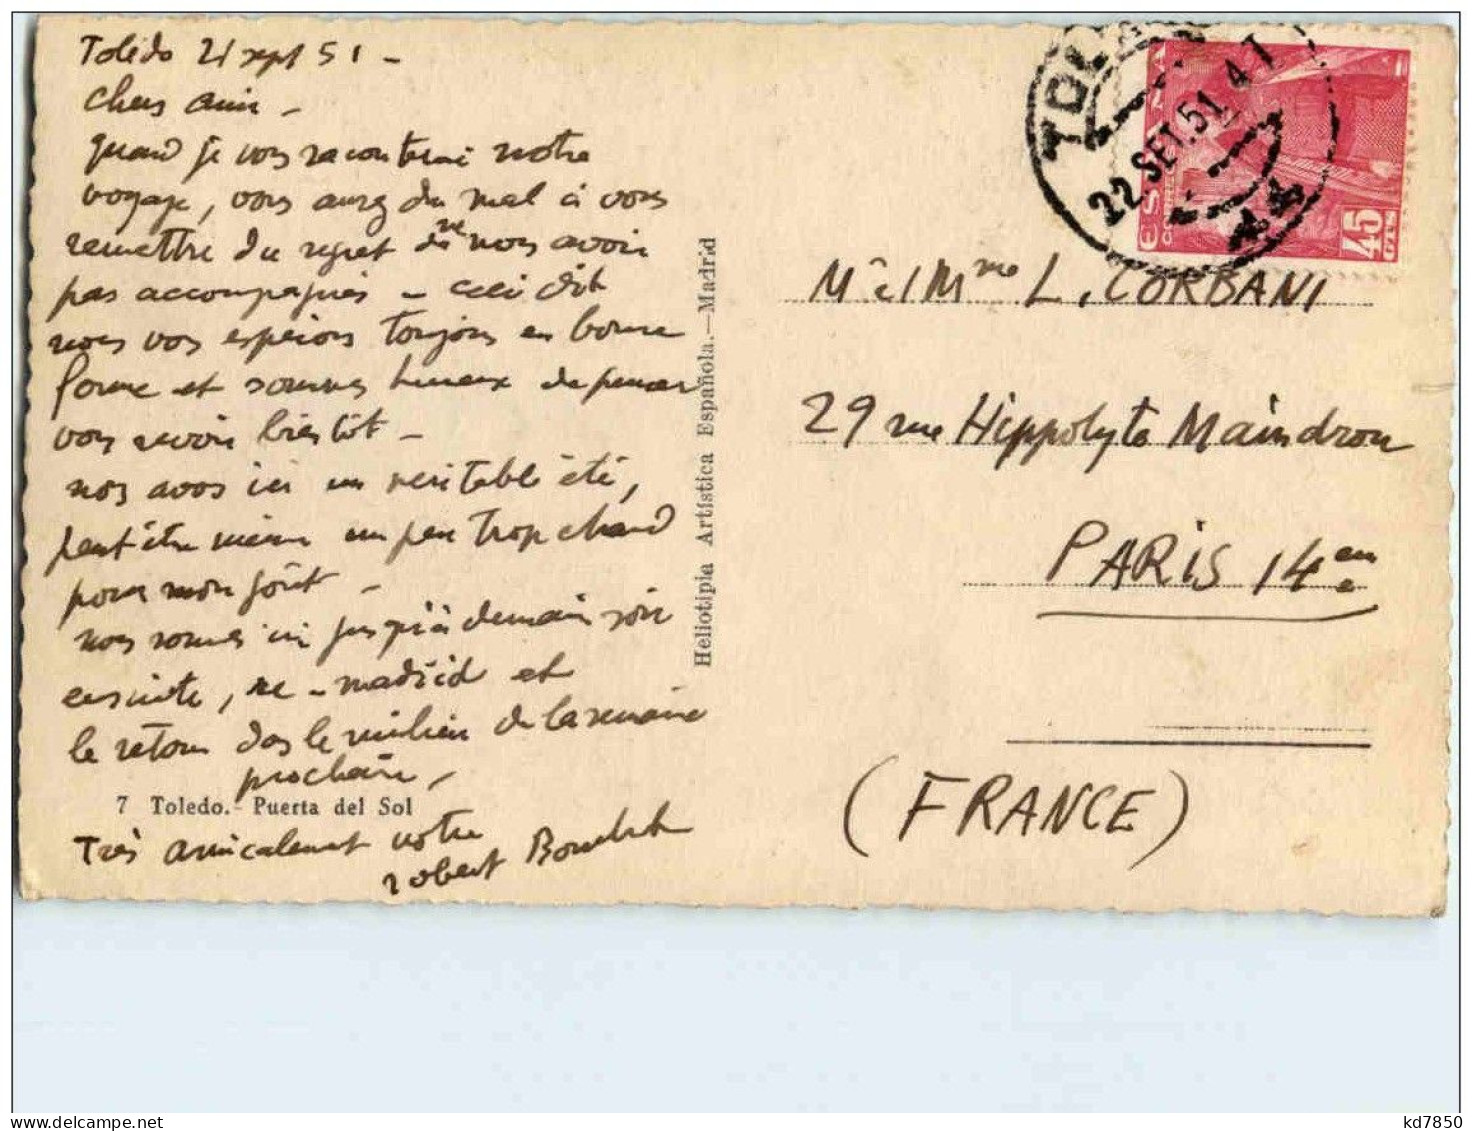 Toledo 21 sept 51 -
chers amis -
quand je vous raconterai notre
voyage, vous aurez du mal à vous
remettre du regret de ne nous avoir
pas accompagnés - ceci dit
nous vous espérons toujours en bonne
forme et sommes heureux de penser
vous revoir bientôt -
nos avos ici un veritable été,
peut être même un peu trop chaud
pour mon goût -
nous sommes ici jusqu'à demain soir
ensuite, madrid et
le retour das le milieu de la semaine
prochaine -
7 Toledo.- Puerta del Sol
Très amicalement votre
robert
Heliotipia Artística Española.-Madrid
TOL
22 SET. 51
ESPAÑA
CORREOS
45
CTS
Mr et Mme L. CORBANI
29 rue Hippolyte Maindron
PARIS 14eme
(FRANCE)
kd7850